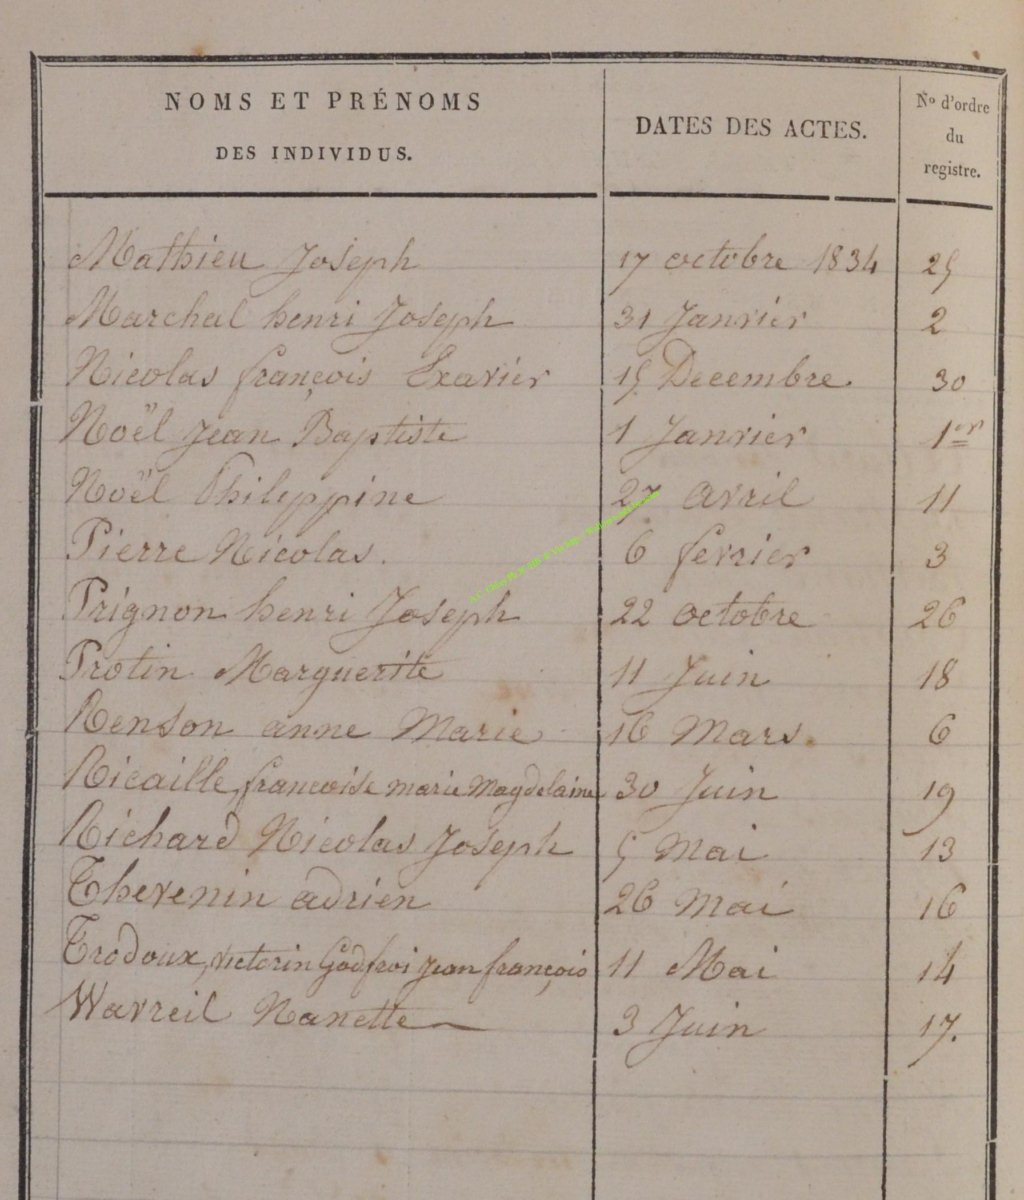 NOMS ET PRÉNOMS
DES INDIVIDUS.
DATES DES ACTES.
Nº d'ordre
du
registre.
Mathieu Joseph 17 octobre 1834 25
Marchal henri Joseph 31 Janvier 2
Nicolas françois Exavier 15 Decembre 30
Noël Jean Baptiste 1 Janvier 1er
Noël Phileppine 27 avril 11
Pierre Nicolas. 6 fevrier 3
Prignon henri Joseph 22 octobre 26
Protin Marguerite 11 Juin 18
Renson anne Marie 16 Mars. 6
Ricaille, francoise marie Magdelaine 30 Juin 19
Richard Nicolas Joseph 5 Mai 13
Thevenin adrien 26 Mai 16
Trodoux, victorin Godfroi Jean françois 11 Mai 14
Wavreil Nanette 3 Juin 17.